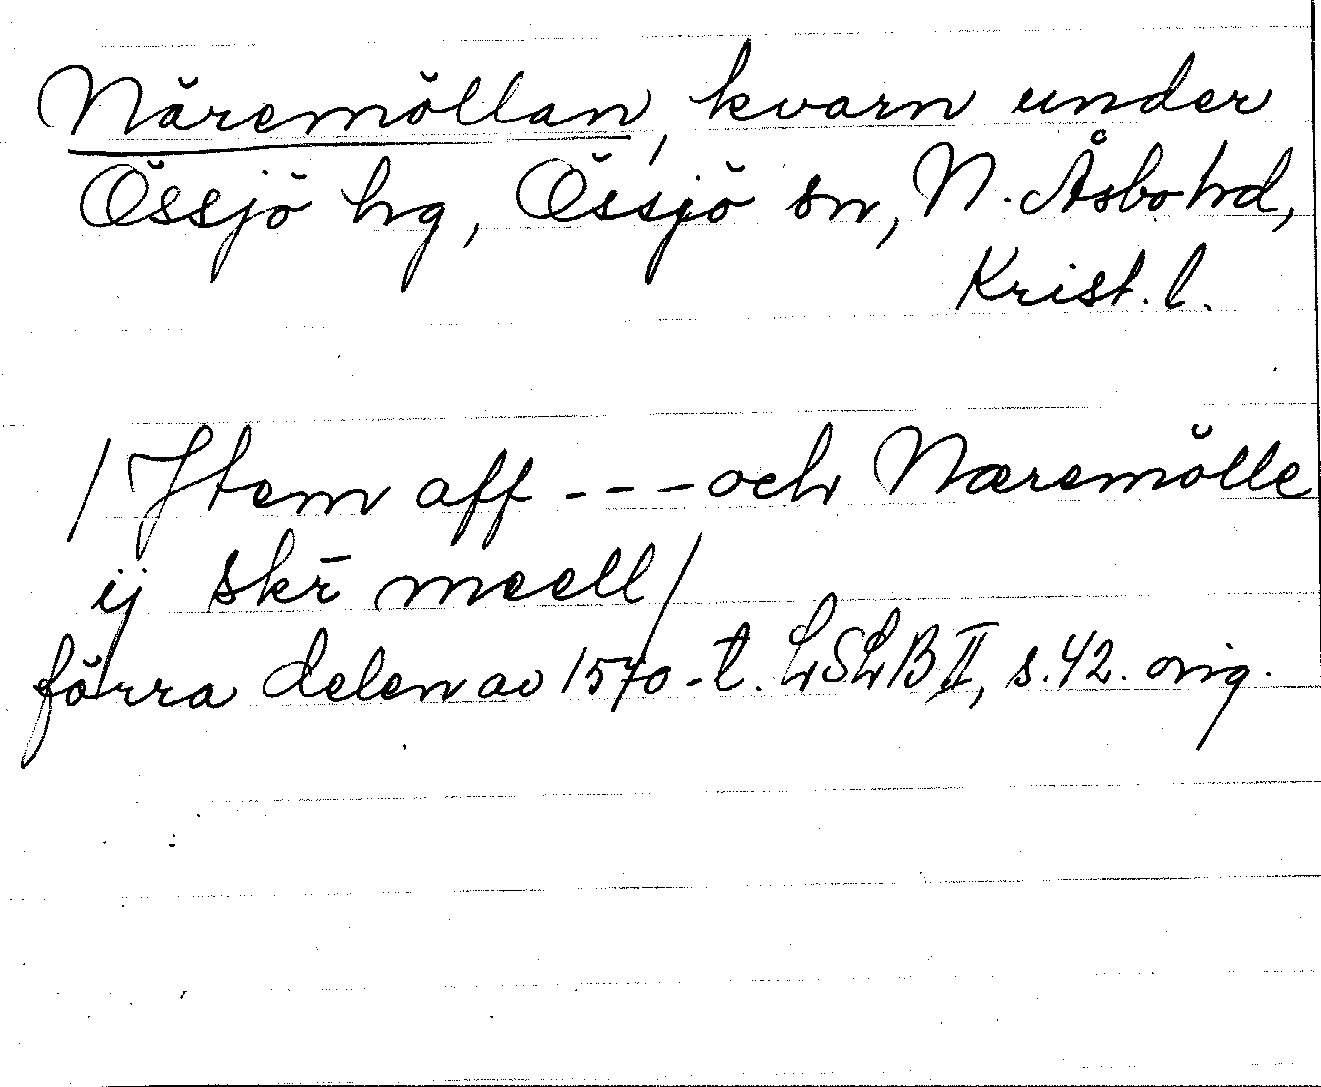 Näremöllan, kvarn under
Össjö hg, Össjö sn, N. Åsbo hd,
Krist. l.
/Item aff - - - och Næremölle
ij skr̄ meell/
förra delen av 1570-t. LSLB II, s. 42. orig.